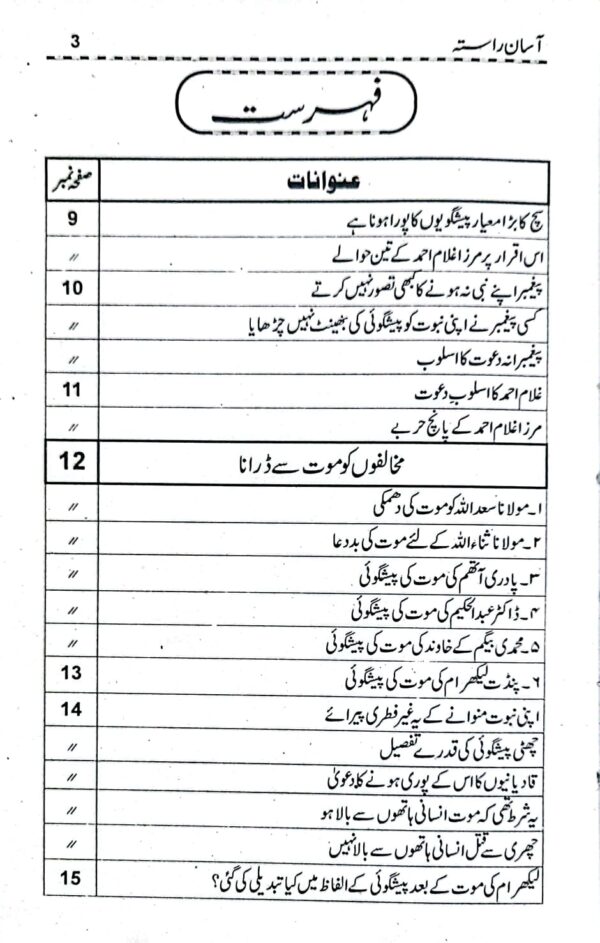 آسان راستہ 3
فہرست
عنوانات صفحہ نمبر
سچ کا بڑا معیار پیشگویوں کا پورا ہونا ہے 9
اس اقرار پر مرزا غلام احمد کے تین حوالے 〃
پیغمبر اپنے نبی نہ ہونے کا کبھی تصور نہیں کرتے 10
کسی پیغمبر نے اپنی نبوت کو پیشگوئی کی بھینٹ نہیں چڑھایا 〃
پیغمبرانہ دعوت کا اسلوب 〃
غلام احمد کا اسلوب دعوت 11
مرزا غلام احمد کے پانچ حربے 〃
مخالفوں کو موت سے ڈرانا 12
۱۔ مولانا سعد اللہ کو موت کی دھمکی 〃
۲۔ مولانا ثناء اللہ کے لئے موت کی بددعا 〃
۳۔ پادری آتھم کی موت کی پیشگوئی 〃
۴۔ ڈاکٹر عبدالحکیم کی موت کی پیشگوئی 〃
۵۔ محمدی بیگم کے خاوند کی موت کی پیشگوئی 〃
۶۔ پنڈت لیکھرام کی موت کی پیشگوئی 13
اپنی نبوت منوانے کے یہ غیر فطری پیرائے 14
چھٹی پیشگوئی کی قدرے تفصیل 〃
قادیانیوں کا اس کے پوری ہونے کا دعویٰ 〃
یہ شرط تھی کہ موت انسانی ہاتھوں سے بالا ہو 〃
چھری سے قتل انسانی ہاتھوں سے بالا نہیں 〃
لیکھرام کی موت کے بعد پیشگوئی کے الفاظ میں کیا تبدیلی کی گئی؟ 15